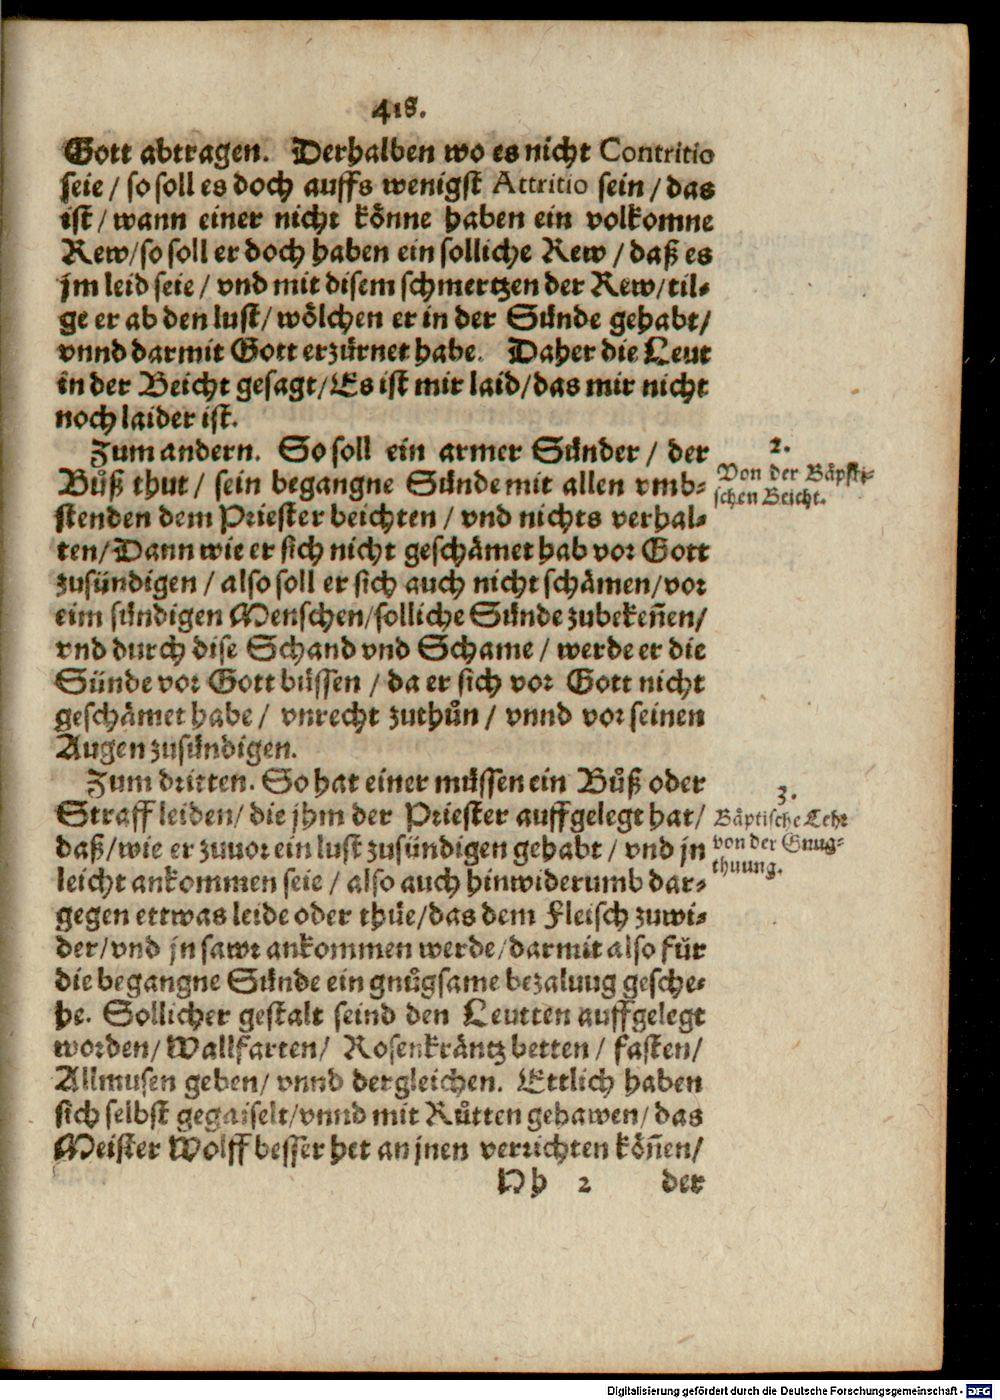 418.
Gott abtragen. Derhalben wo es nicht Contritio
seie / so soll es doch auffs wenigst Attritio sein / das
ist / wann einer nicht könne haben ein volkomne
Rew/so soll er doch haben ein solliche Rew / daß es
jm leid seie / vnd mit disem schmertzen der Rew/til-
ge er ab den lust/ wölchen er in der Sünde gehabt/
vnnd darmit Gott erzürnet habe. Daher die Leut
in der Beicht gesagt/Es ist mir laid/das mir nicht
noch laider ist.
Zum andern. So soll ein armer Sünder / der
Bůß thut / sein begangne Sünde mit allen vmb-
stenden dem Priester beichten / vnd nichts verhal-
ten/Dann wie er sich nicht geschämet hab vor Gott
zusündigen / also soll er sich auch nicht schämen/vor
eim sündigen Menschen/solliche Sünde zubekeñen/
vnd durch dise Schand vnd Schame / werde er die
Sünde vor Gott büssen / da er sich vor Gott nicht
geschämet habe / vnrecht zuthůn / vnnd vor seinen
Augen zusündigen.
2.
Von der Bäpsti-
schen Beicht.
Zum dritten. So hat einer müssen ein Bůß oder
Straff leiden/ die jhm der Priester auffgelegt hat/
daß/wie er zuuor ein lust zusündigen gehabt / vnd jn
leicht ankommen seie / also auch hinwiderumb dar-
gegen ettwas leide oder thüe/das dem Fleisch zuwi-
der/vnd jn sawr ankommen werde/darmit also für
die begangne Sünde ein gnůgsame bezalung gesche-
he. Sollicher gestalt seind den Leutten auffgelegt
worden/ Wallfarten/ Rosenkräntz betten / fasten/
Allmusen geben/ vnnd dergleichen. Ettlich haben
sich selbst gegaiselt/vnnd mit Růtten gehawen/das
Meister Wolff besser het an jnen verrichten köñen/
3.
Bäptische Lehr
von der Gnug-
thuung.
Hh 2 der
Digitalisierung gefördert durch die Deutsche Forschungsgemeinschaft - DFG